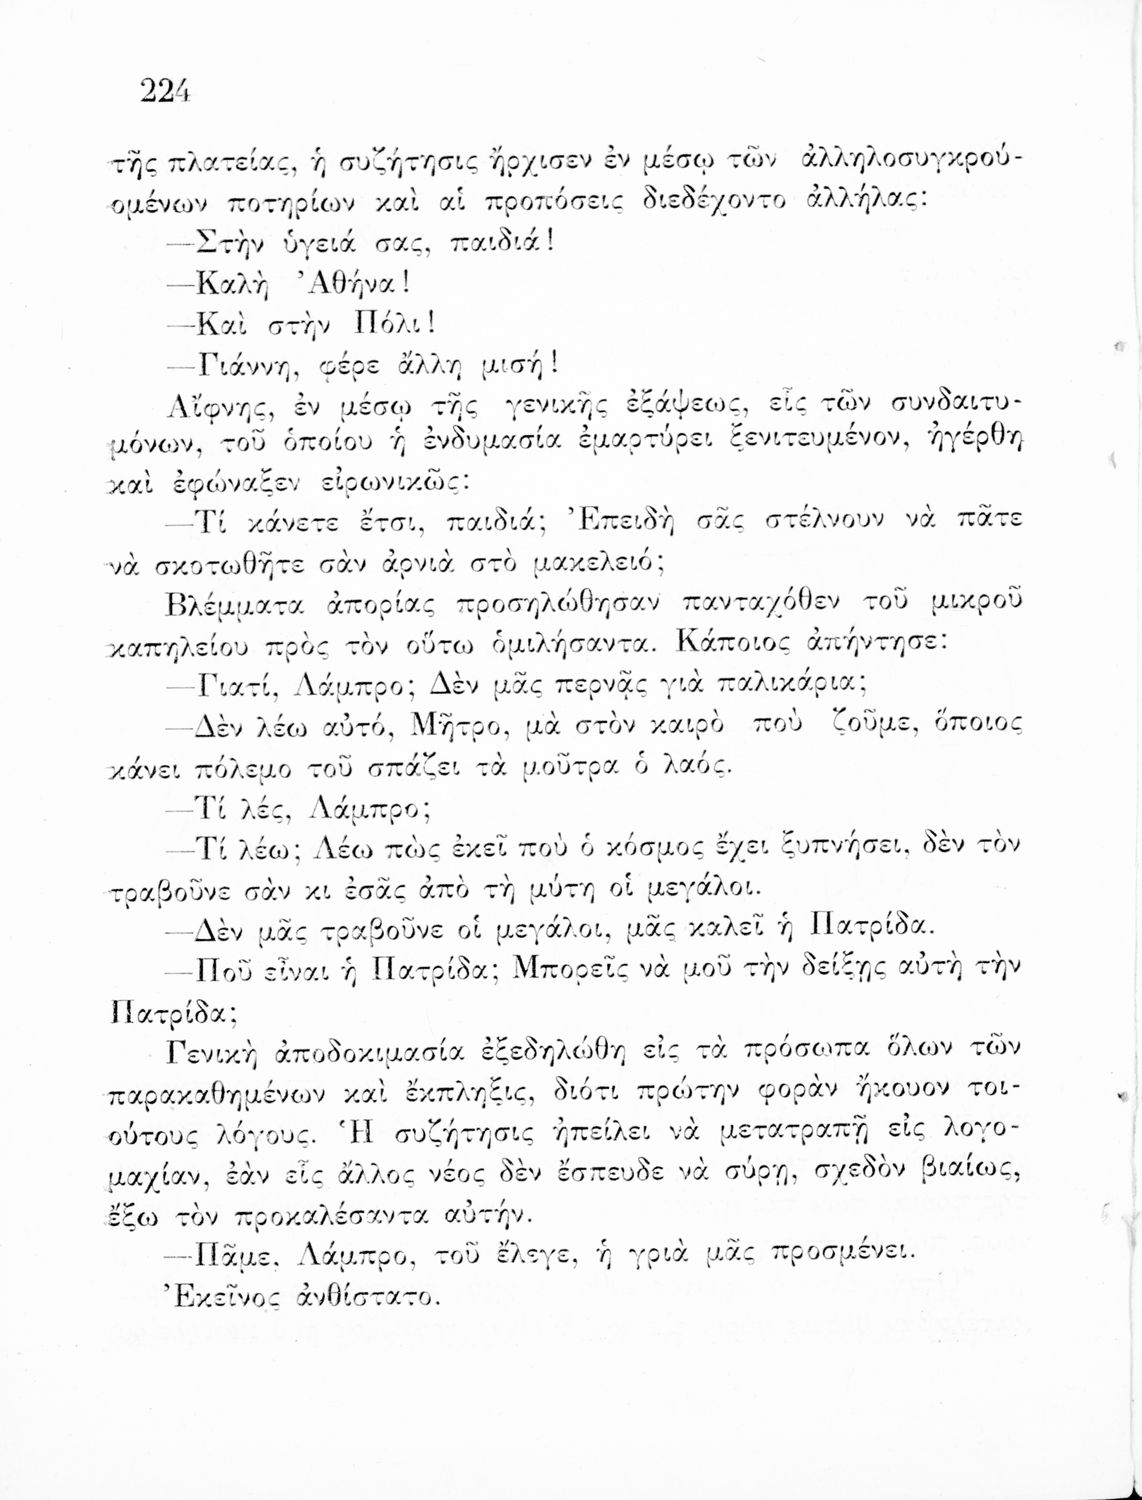 224
τῆς πλατείας, ἡ συζήτησις ἤρχισεν ἐν μέσῳ τῶν ἀλληλοσυγκρού-
ομένων ποτηρίων καὶ αἱ προπόσεις διεδέχοντο ἀλλήλας:
—Στὴν ὑγειά σας, παιδιά!
—Καλὴ Ἀθήνα!
—Καὶ στὴν Πόλι!
—Γιάννη, φέρε ἄλλη μισή!
Αἴφνης, ἐν μέσῳ τῆς γενικῆς ἐξάψεως, εἷς τῶν συνδαιτυ-
μόνων, τοῦ ὁποίου ἡ ἐνδυμασία ἐμαρτύρει ξενιτευμένον, ἠγέρθη
καὶ ἐφώναξεν εἰρωνικῶς:
—Τί κάνετε ἔτσι, παιδιά; Ἐπειδὴ σᾶς στέλνουν νὰ πᾶτε
νὰ σκοτωθῆτε σὰν ἀρνιὰ στὸ μακελειό;
Βλέμματα ἀπορίας προσηλώθησαν πανταχόθεν τοῦ μικροῦ
καπηλείου πρὸς τὸν οὕτω ὁμιλήσαντα. Κάποιος ἀπήντησε:
—Γιατί, Λάμπρο; Δὲν μᾶς περνᾷς γιὰ παλικάρια;
—Δὲν λέω αὐτό, Μῆτρο, μὰ στὸν καιρὸ ποὺ ζοῦμε, ὅποιος
κάνει πόλεμο τοῦ σπάζει τὰ μοῦτρα ὁ λαός.
—Τί λές, Λάμπρο;
—Τί λέω; Λέω πὼς ἐκεῖ ποὺ ὁ κόσμος ἔχει ξυπνήσει, δὲν τὸν
τραβοῦνε σὰν κι ἐσᾶς ἀπὸ τὴ μύτη οἱ μεγάλοι.
—Δὲν μᾶς τραβοῦνε οἱ μεγάλοι, μᾶς καλεῖ ἡ Πατρίδα.
—Ποῦ εἶναι ἡ Πατρίδα; Μπορεῖς νὰ μοῦ τὴν δείξῃς αὐτὴ τὴν
Πατρίδα;
Γενικὴ ἀποδοκιμασία ἐξεδηλώθη εἰς τὰ πρόσωπα ὅλων τῶν
παρακαθημένων καὶ ἔκπληξις, διότι πρώτην φορὰν ἤκουον τοι-
ούτους λόγους. Ἡ συζήτησις ἠπείλει νὰ μετατραπῇ εἰς λογο-
μαχίαν, ἐὰν εἷς ἄλλος νέος δὲν ἔσπευδε νὰ σύρῃ, σχεδὸν βιαίως,
ἔξω τὸν προκαλέσαντα αὐτήν.
—Πᾶμε, Λάμπρο, τοῦ ἔλεγε, ἡ γριὰ μᾶς προσμένει.
Ἐκεῖνος ἀνθίστατο.